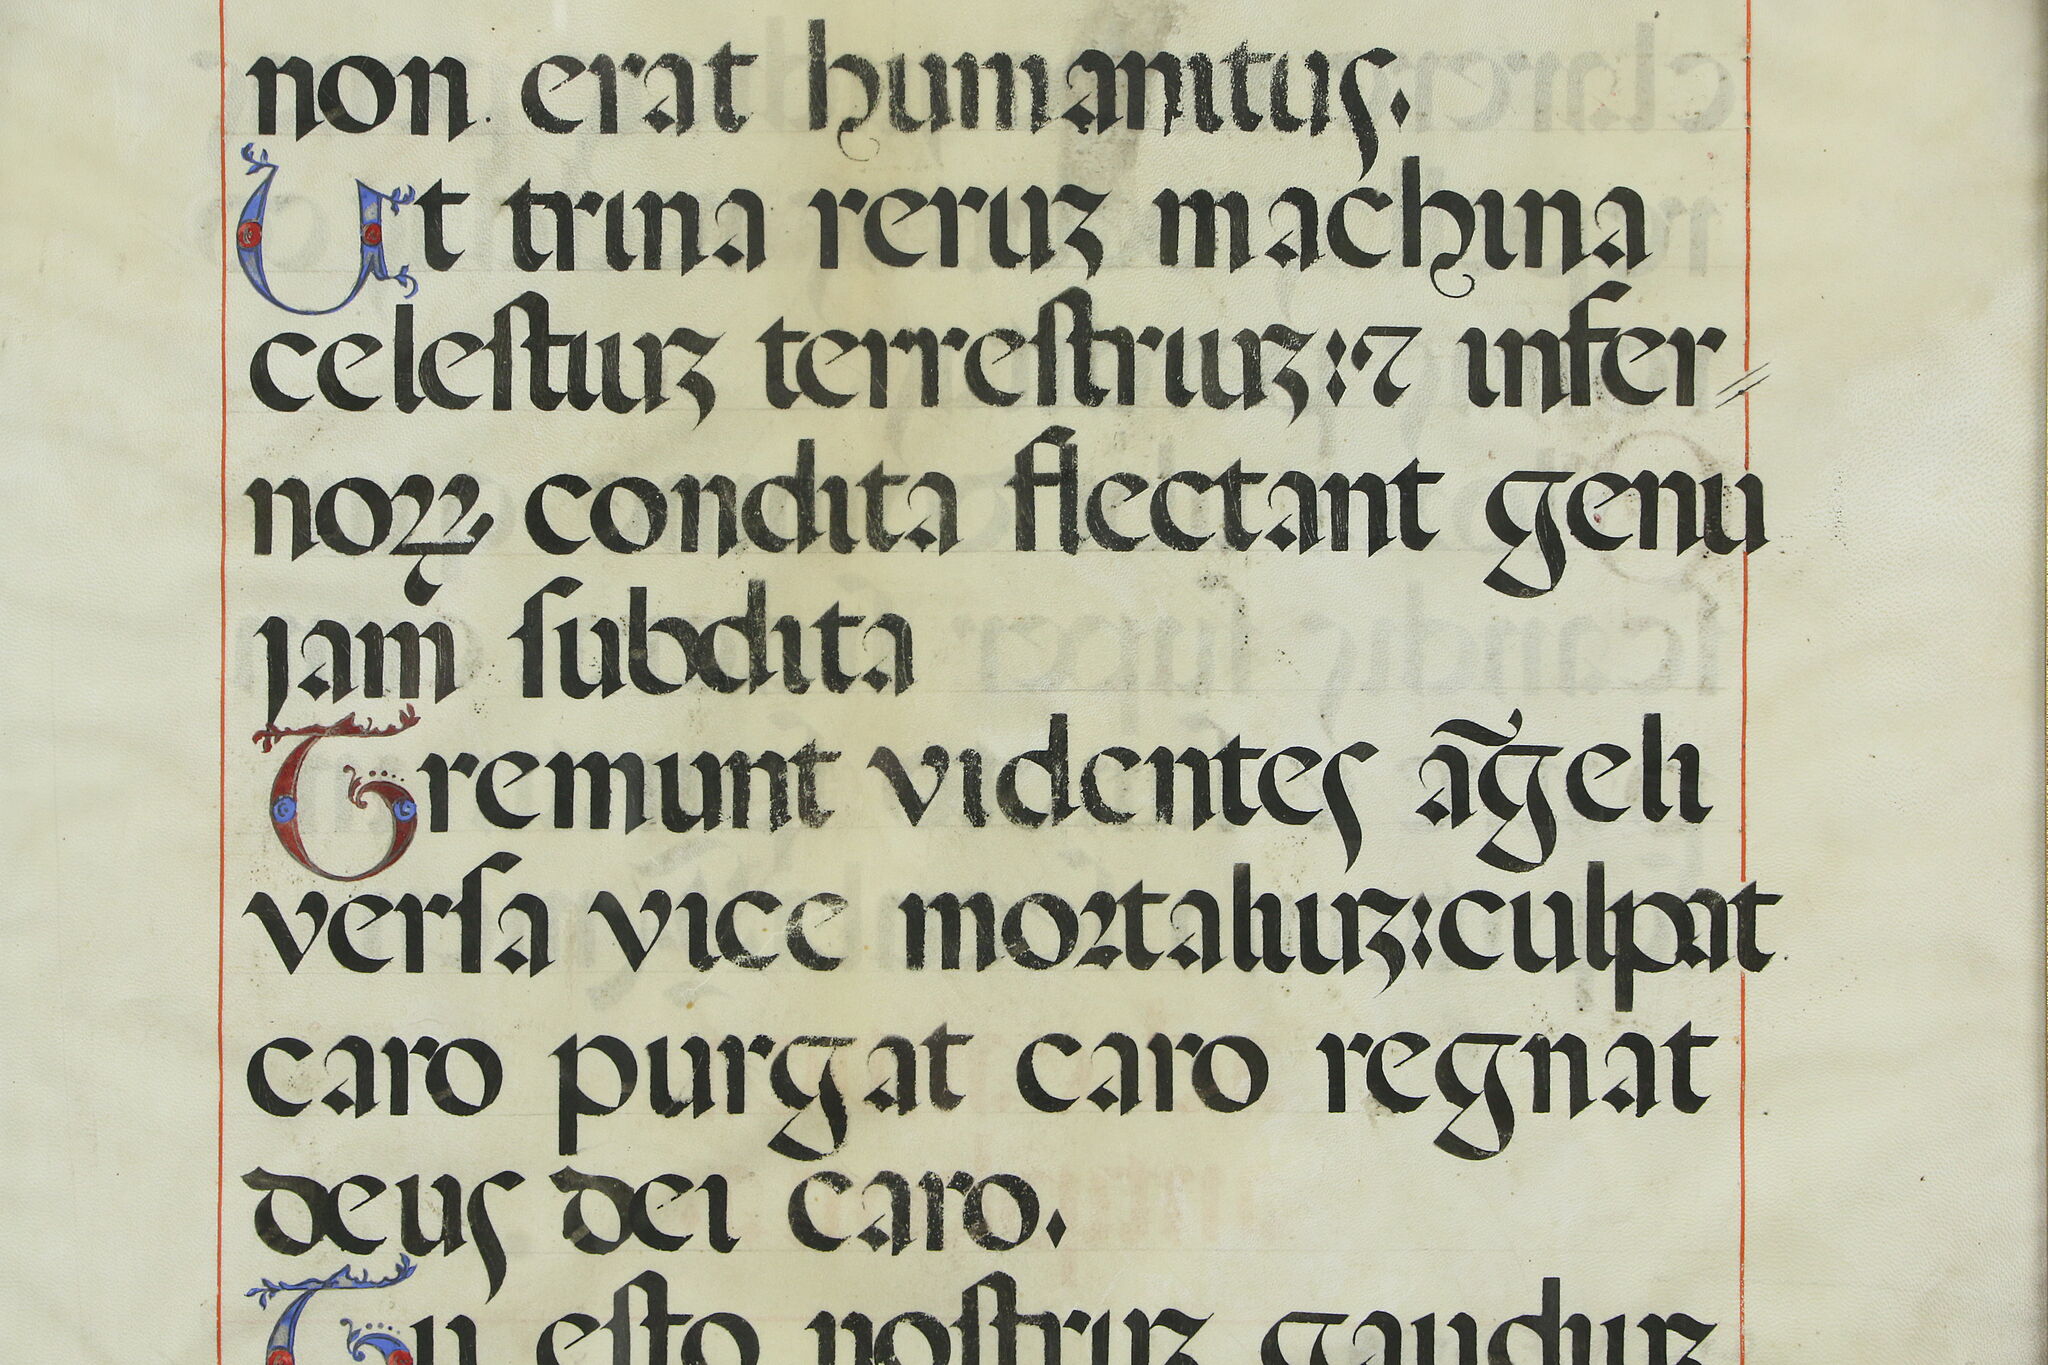 non erat humanitus.
Ut trina reruʒ machina
celeſtiuʒ terreſtriuʒ:⁊ infer⸗
noꝝ condita flectant genu
jam ſubdita
Tremunt videntes ãgeli
verſa vice moꝛtaliuʒ:culpat
caro purgat caro regnat
deus dei caro.
Tu eſto noſtruʒ gaudiuʒ